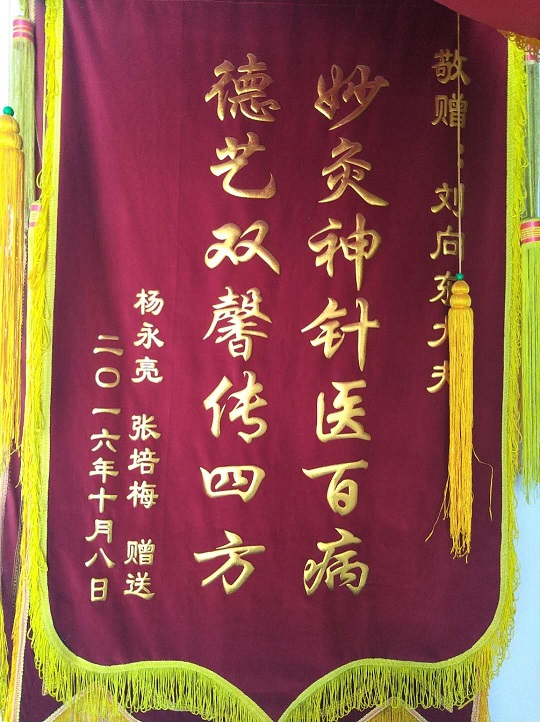 敬赠：刘向东大夫
妙灸神针医百病
德艺双馨传四方
杨永亮 张培梅 赠送
二〇一六年十月八日